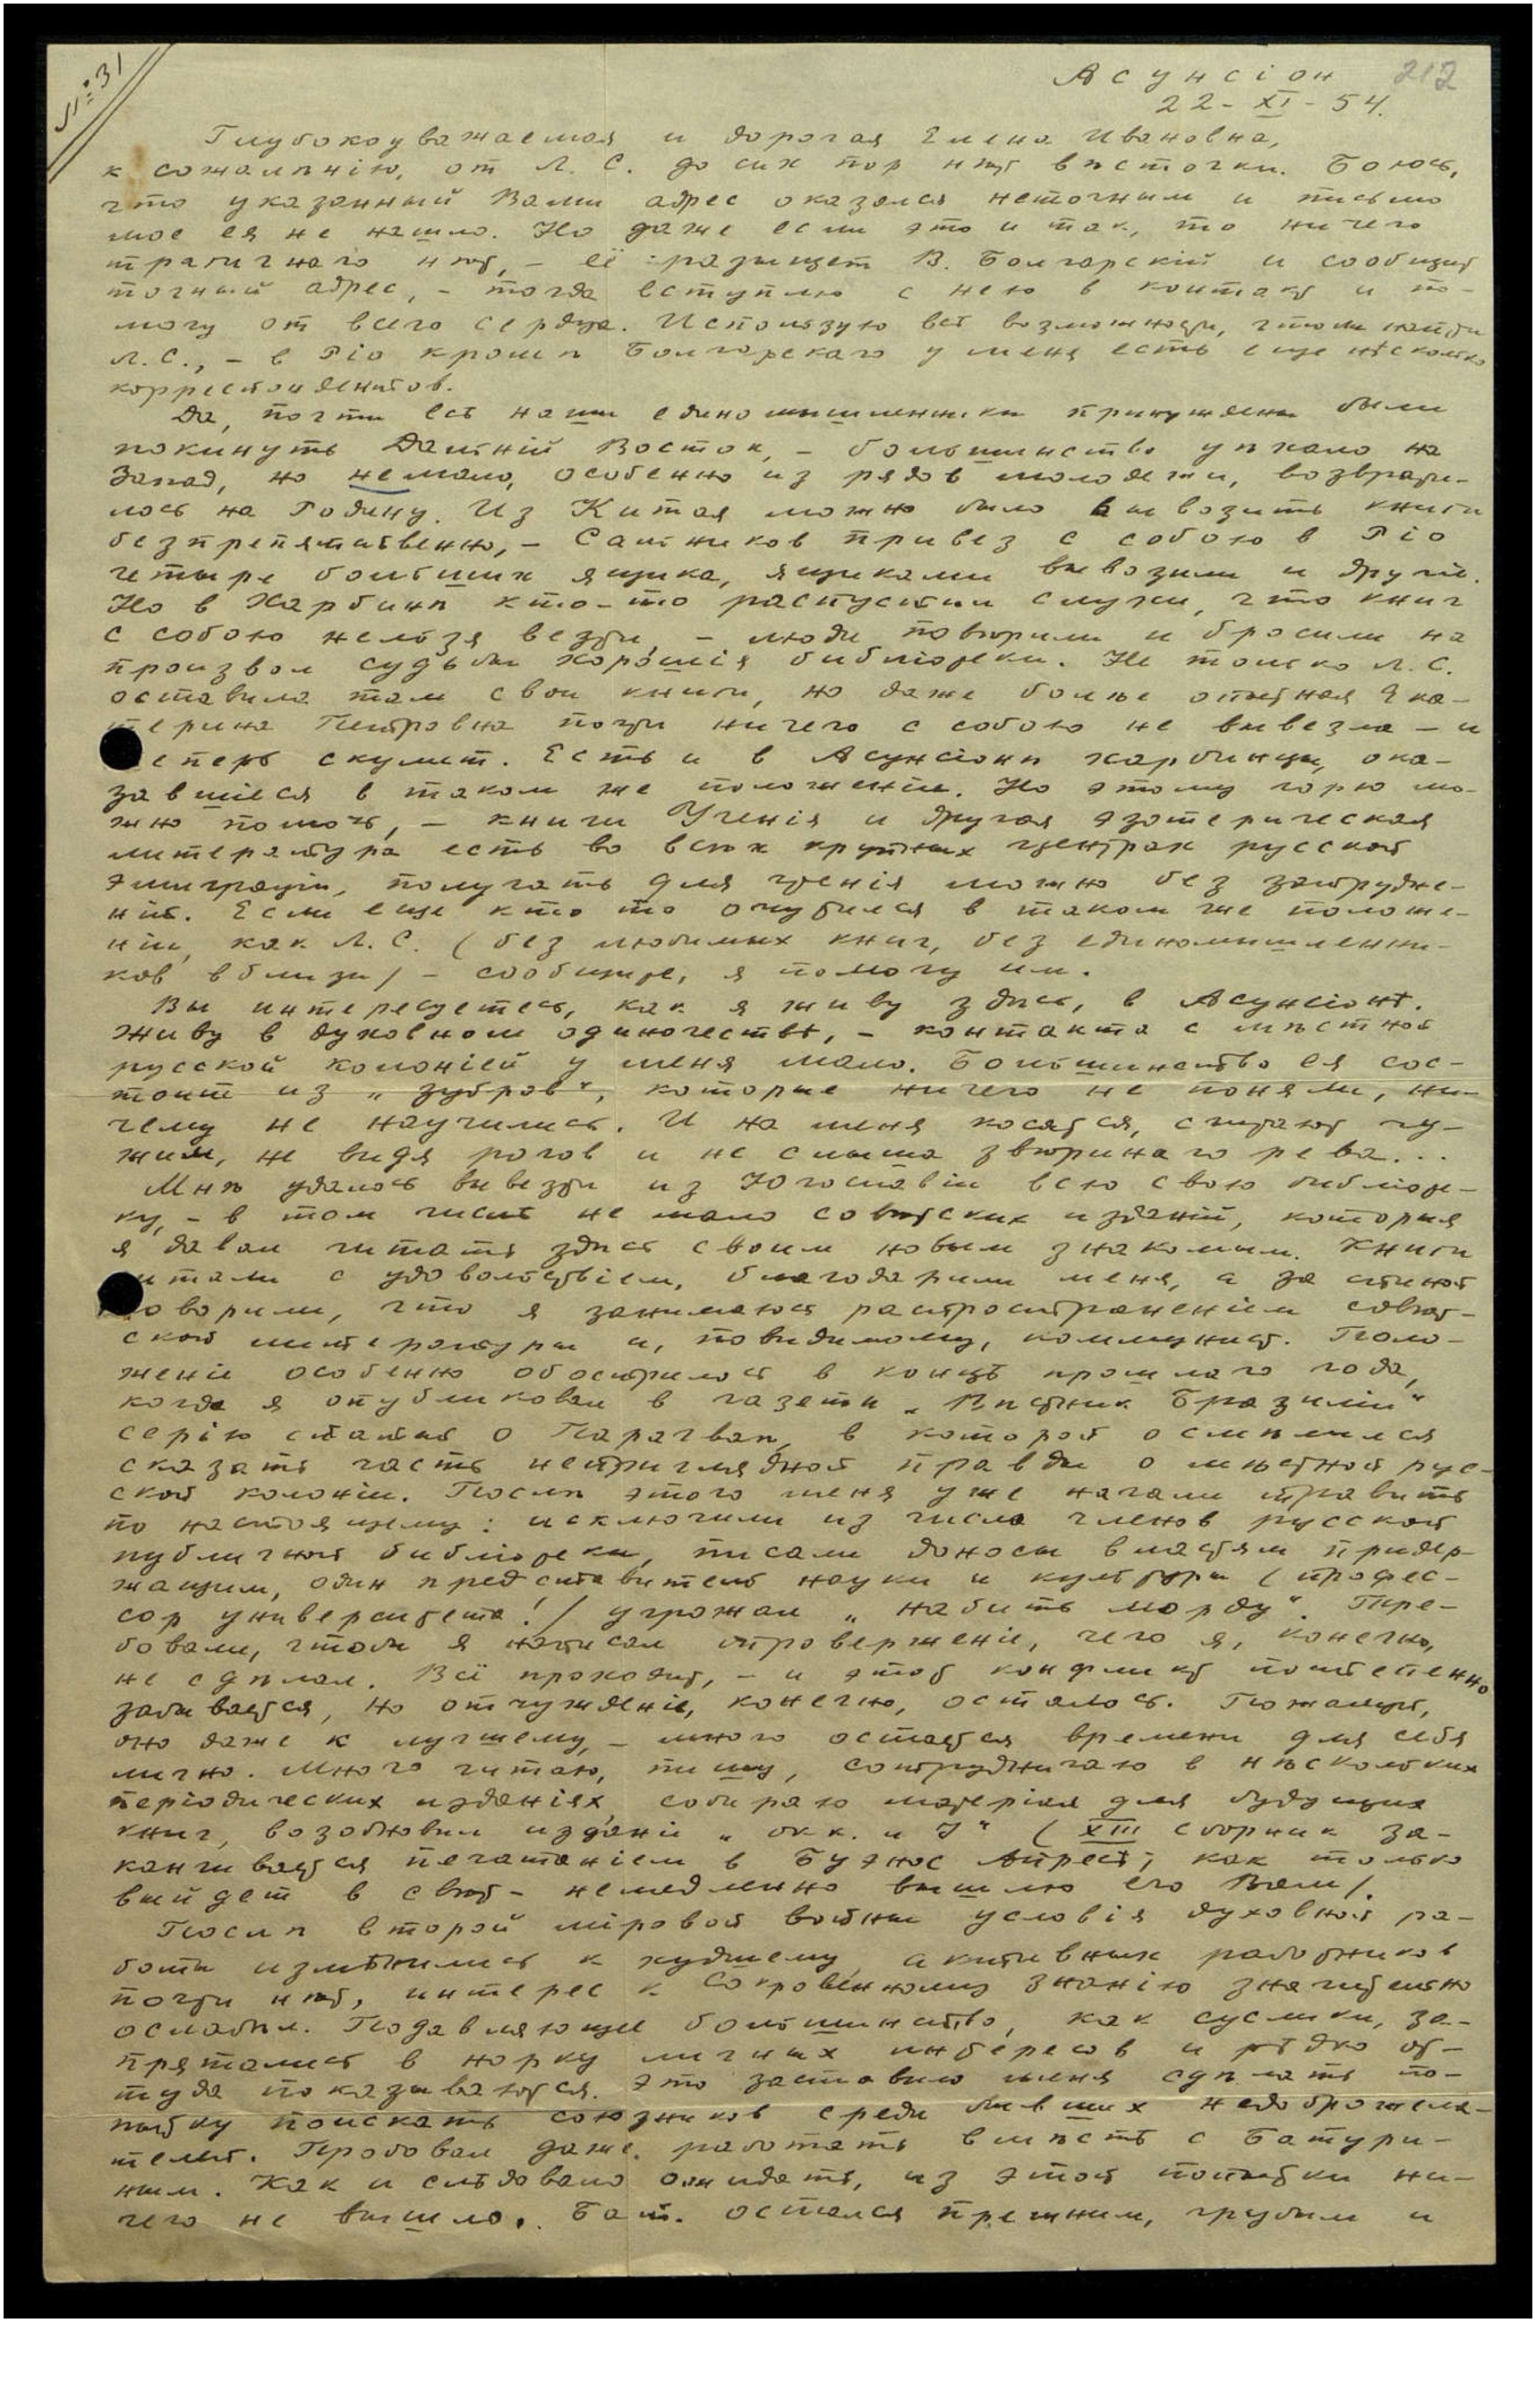 № 31
Асунсіон 212
22-XI-54.
Глубокоуважаемая и дорогая Елена Ивановна,
к сожалѣнію, от Л. С. до сих пор нѣт вѣсточки. Боюсь,
что указанный Вами адрес оказался неточным и письмо
мое ея не нашло. Но даже если это и так, то ничего
трагичнаго нѣт, – её разыщет В. Болгарскій и сообщит
точный адрес, – тогда вступлю с нею в контакт и по-
могу от всего сердца. Использую всѣ возможности, чтобы найти
Л. С., – в Ріо кромѣ Болгарскаго у меня есть еще нѣсколько
корреспондентов.
Да, почти всѣ наши единомышленники принуждены были
покинуть Дальній Восток, – большинство уѣхало на
Запад, но немало, особенно из рядов молодежи, возврати-
лось на Родину. Из Китая можно было вывозить книги
безпрепятственно, – Сальников привез с собою в Ріо
четыре больших ящика, ящиками вывозили и другіе.
Но в Харбинѣ кто-то распустил слухи, что книг
с собою нельзя везти, – люди повѣрили и бросили на
произвол судьбы хорошія библіотеки. Не только Л. С.
оставила там свои книги, но даже более опытная Ека-
терина Петровна почти ничего с собою не вывезла – и
теперь скучает. Есть и в Асунсіонѣ харбинцы, ока-
завшіеся в таком же положеніи. Но этому горю мо-
жно помочь, – книги Ученія и другая эзотерическая
литература есть во всѣх крупных центрах русской
эмиграціи, получать для чтенія можно без затрудне-
ній. Если еще кто то очутился в таком же положе-
ніи, как Л. С. (без любимых книг, без единомышленни-
ков вблизи) – сообщите, я помогу им.
Вы интересуетесь, как я живу здѣсь, в Асунсіонѣ.
Живу в духовном одиночествѣ, – контакта с мѣстной
русской колоніей у меня мало. Большинство ея сос-
тоит из „зубров“, которые ничего не поняли, ни-
чему не научились. И на меня косятся, считают чу-
жим, не видя рогов и не слыша звѣринаго рева...
Мнѣ удалось вывезти из Югославіи всю свою библіоте-
ку, – в том числѣ не мало совѣтских изданій, которыя
я давал читать здѣсь своим новым знакомым. Книги
читали с удовольствіем, благодарили меня, а за спиной
говорили, что я занимаюсь распространеніем совѣт-
ской литературы и, повидимому, коммунист. Поло-
женіе особенно обострилось в концѣ прошлаго года,
когда я опубликовал в газетѣ „Вѣстник Бразиліи“
серію статей о Парагваѣ, в которой осмѣлился
сказать часть неприглядной правды о мѣстной рус-
ской колоніи. Послѣ этого меня уже начали травить
по настоящему: исключили из числа членов русской
публичной библіотеки, писали доносы властям придер-
жащим, один представитель науки и культуры (профес-
сор университета!) угрожал „набить морду“. Тре-
бовали, чтобы я написал опроверженіе, чего я, конечно,
не сдѣлал. Всё проходит, – и этот конфликт постепенно
забывается, но отчужденіе, конечно, осталось. Пожалуй,
оно даже к лучшему, – много остается времени для себя
лично. Много читаю, пишу, сотрудничаю в нѣскольких
періодических изданіях, собираю матеріал для будущих
книг, возобновил изданіе „Окк. и Й“ (XIII сборник за-
канчивается печатаніем в Буэнос Айресѣ, как только
выйдет в свѣт – немедленно вышлю его Вам).
Послѣ второй міровой войны условія духовной ра-
боты измѣнились к худшему, активных работников
почти нѣт, интерес к Сокровенному Знанію значительно
ослабѣл. Подавляющее большинство, как суслики, за-
прятались в норку личных интересов и рѣдко от-
туда показываются. Это заставило меня сдѣлать по-
пытку поискать союзников среди бывших недоброжела-
телей. Пробовал даже работать вмѣстѣ с Батури-
ным. Как и слѣдовало ожидать, из этой попытки ни-
чего не вышло. Бат. остался прежним, грубым и